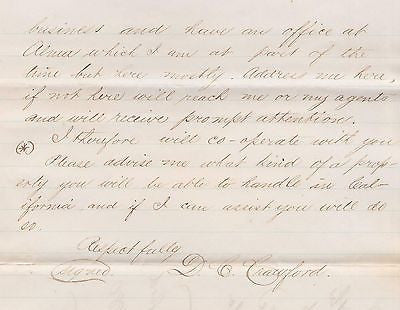 business and have an office at
Alma which I am at part of the
time but here mostly. Address me here,
if not here will reach me or my agents
and will receive prompt attention.
I therefore will co-operate with you
Please advise me what kind of a prop-
erty you will be able to handle in Cal-
ifornia and if I can assist you will do
so.
Respectfully
(signed) D. C. Crawford.